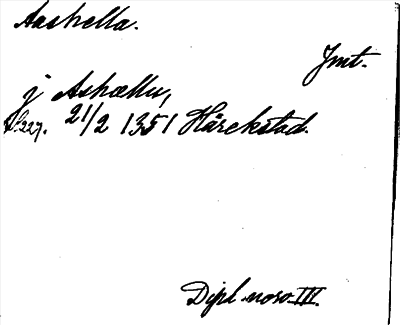 Aashella.
Jmt.
j Ashællu,
s. 227. 21/2 1351 Hårekstad.
Dipl. norv. III.